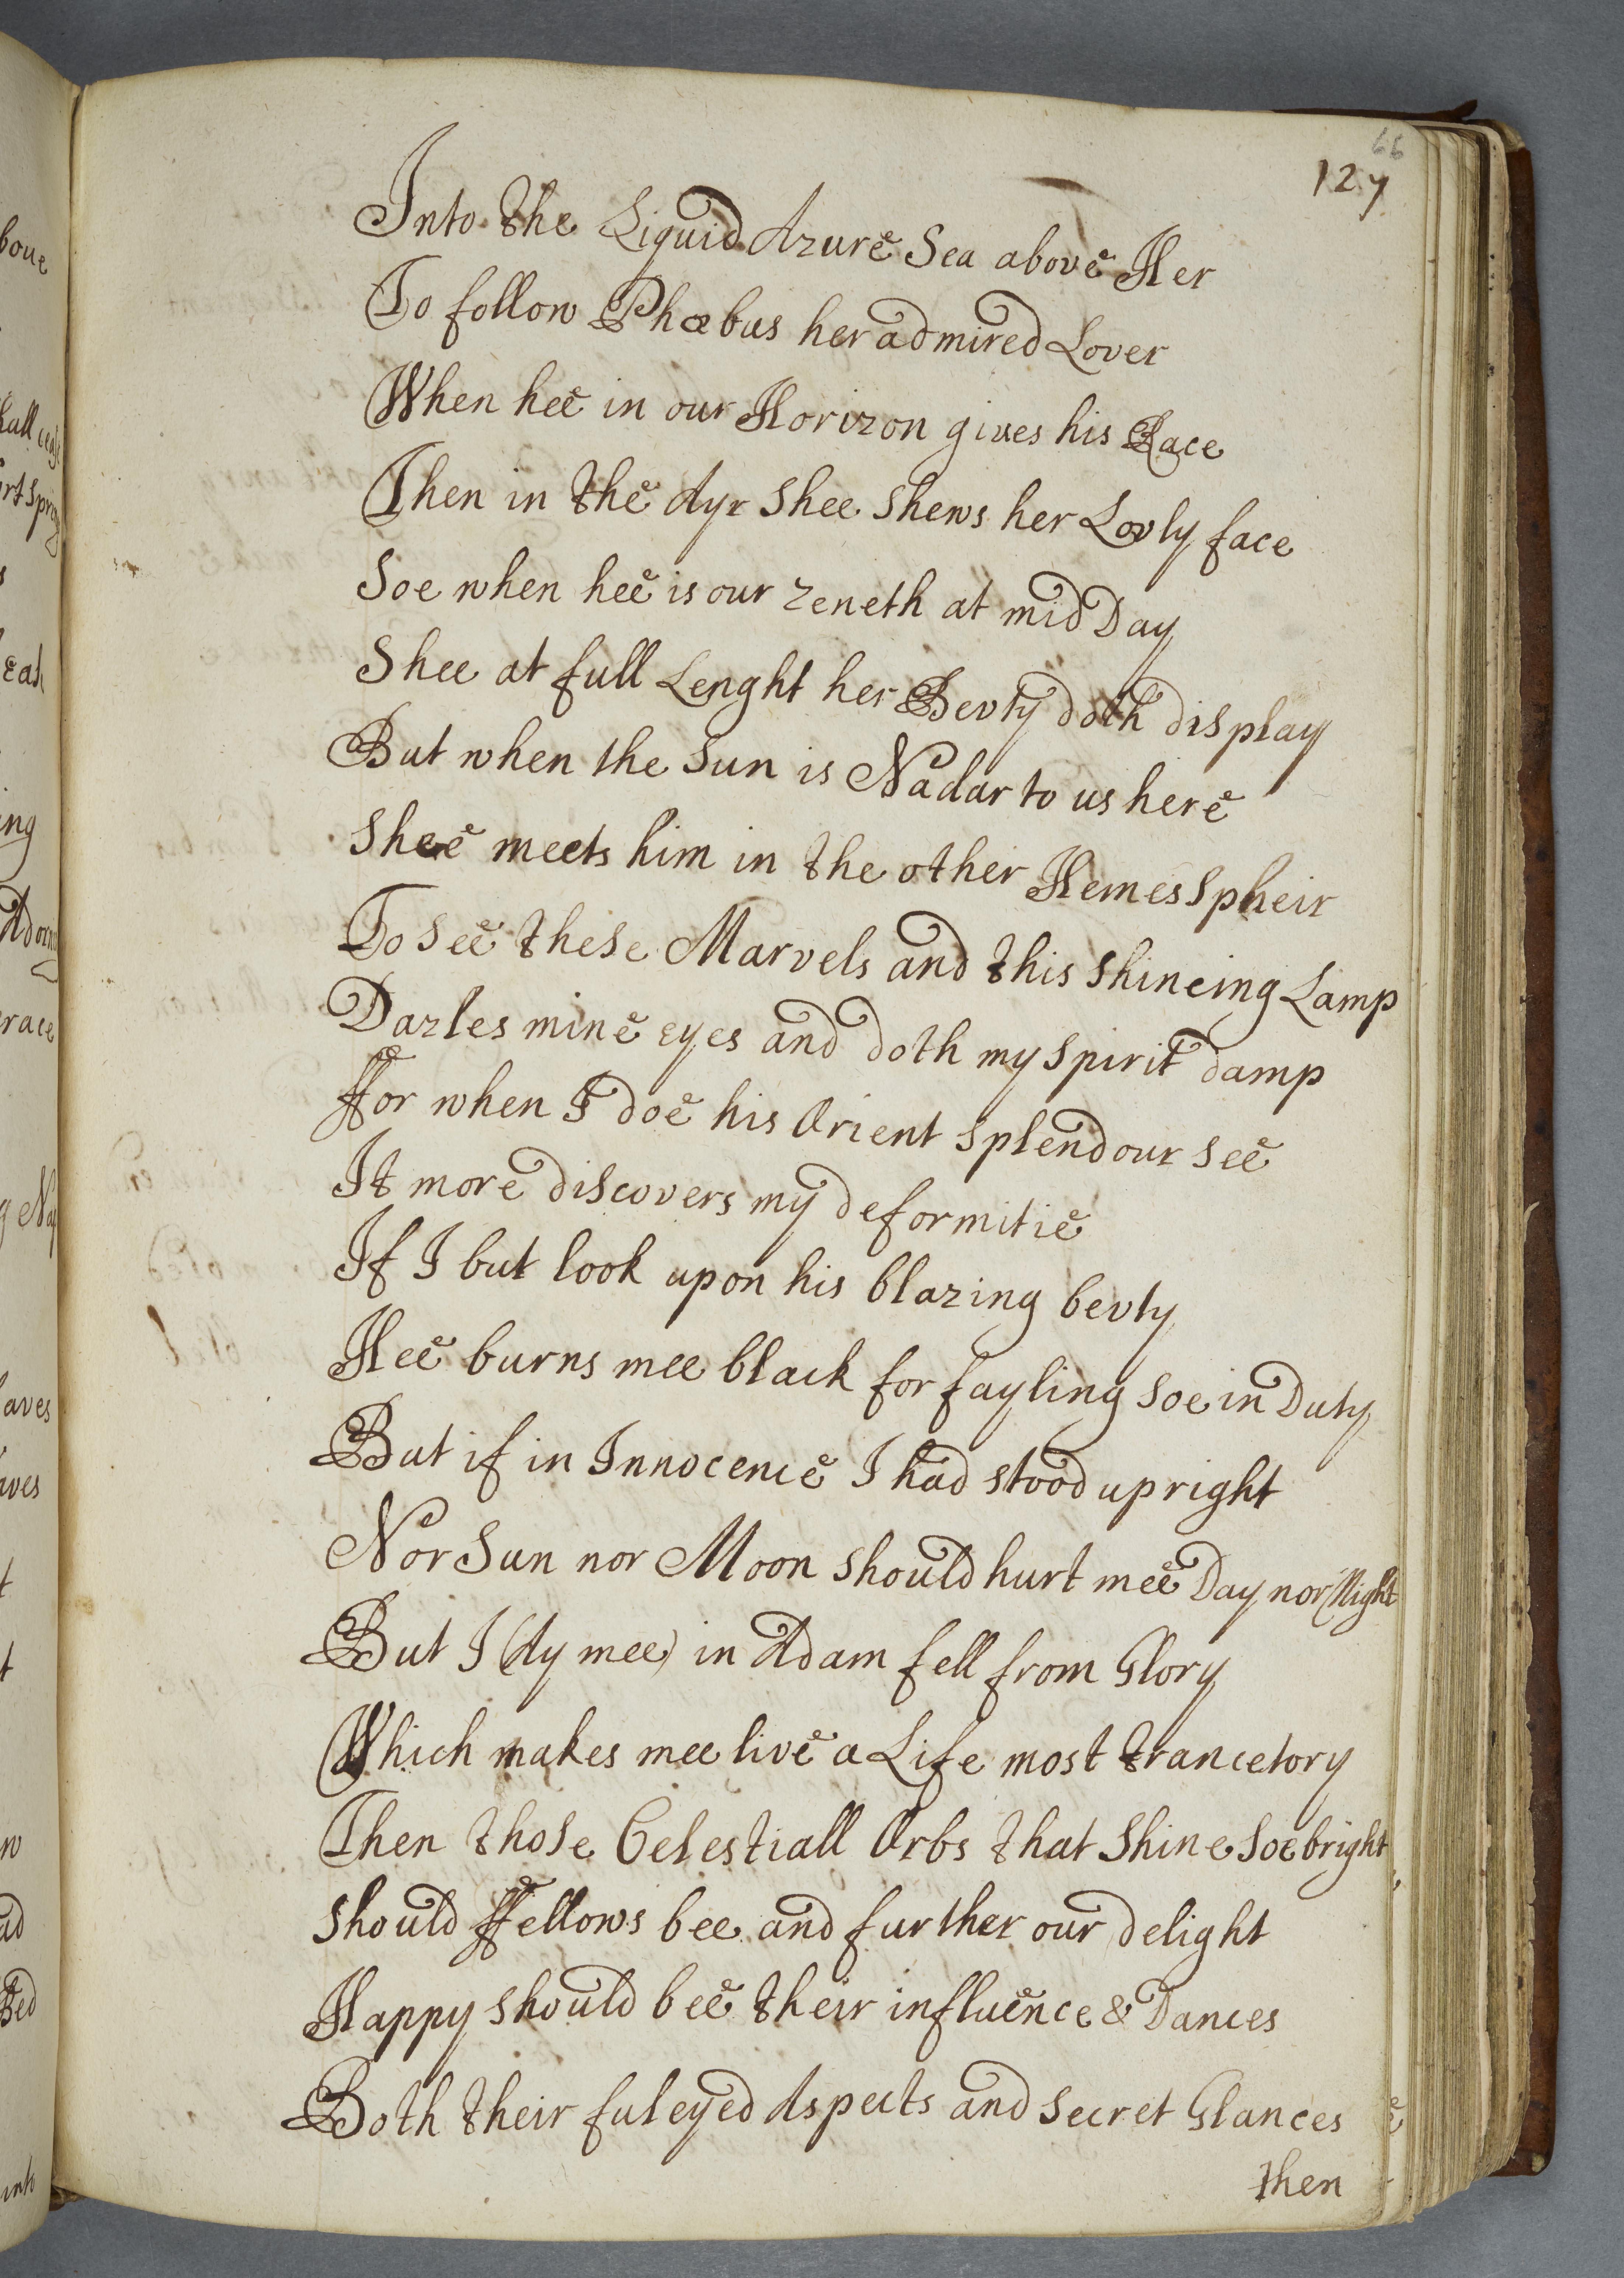 66
127
Into the Liquid Azure Sea above Her
To follow Phœbus her admired Lover
When hee in our Horizon gives his Race
Then in the Ayr Shee Shews her Lovly face
Soe when hee is our Zeneth at mid Day
Shee at full Lenght her Bevty doth display
But when the Sun is Nadar to us here
Shee meets him in the other Hemesspheir
To See these Marvels and this Shineing Lamp
Dazles mine eyes and doth my Spirit damp
ffor when I doe his Orient Splendour See
It more discovers my deformitie
If I but look upon his blazing bevty
Hee burns mee black for fayling Soe in Duty
But if in Innocence I had stood upright
Nor Sun nor Moon Should hurt mee Day nor Night
But I (Ay mee) in Adam fell from Glory
Which makes mee live a Life most trancetory
Then those Celestiall Orbs that Shine Soe bright
Should ffellows bee and further our delight
Happy Should bee their influence & Dances
Both their ful eyed Aspects and Secret Glances
then